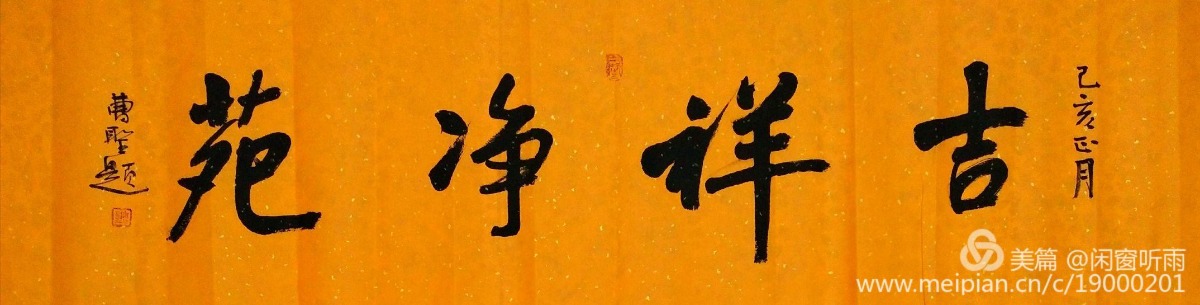 己亥正月
吉祥净苑
曹聖題
美篇 @闲窗听雨
www.meipian.cn/c/19000201